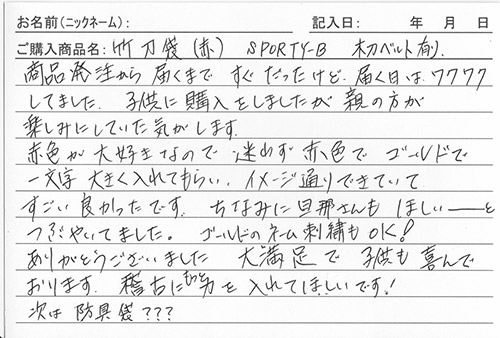 お名前(ニックネーム): 記入日: 年 月 日
ご購入商品名: 竹刀袋(赤) SPORTY-B 木刀ベルト有り.
商品発注から 届くまで すぐだったけど. 届く日は.ワクワク
してました. 子供に購入をしましたが 親の方が
楽しみにしていた気がします.
赤色が大好きなので 迷わず 赤色で ゴールドで
一文字 大きく入れてもらい. イメージ通りできていて
すごい 良かったです. ちなみに旦那さんも ほしい――と
つぶやいてました。 ゴールドのネーム刺繍もOK!
ありがとうございました 大満足で 子供も喜んで
おります. 稽古にもっと力を入れてほしいです!
次は 防具袋???